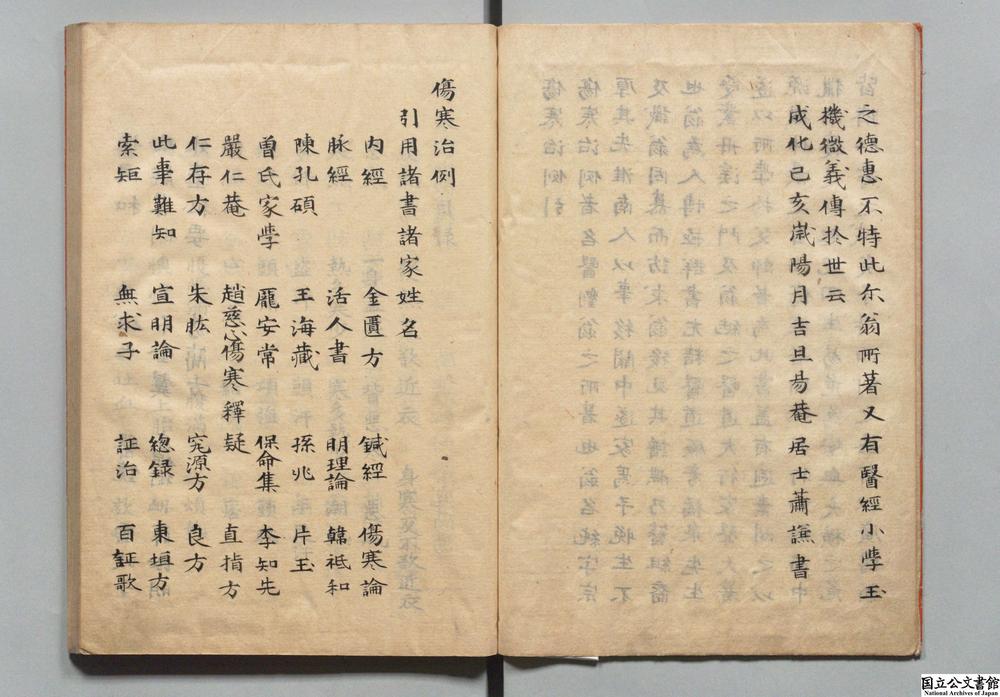 之德惠不特此尔翁所著又有醫經小學玉
機微義傳於世云
成化己亥歳陽月吉旦昜菴居士蕭謙書
傷寒治例
引用諸書諸家姓名
内經　金匱方　鍼經　傷寒論
脉經　活人書　明理論　韓祗和
陳孔碩　王海藏　孫兆　片玉
曽氏家學　龐安常　保命集　李知先
嚴仁菴　趙慈心傷寒釋疑　直指方
仁存方　朱肱　究源方　良方
此事難知　宣明論　總録　東垣方
索矩　無求子　証治　百証歌
国立公文書館
National Archives of Japan